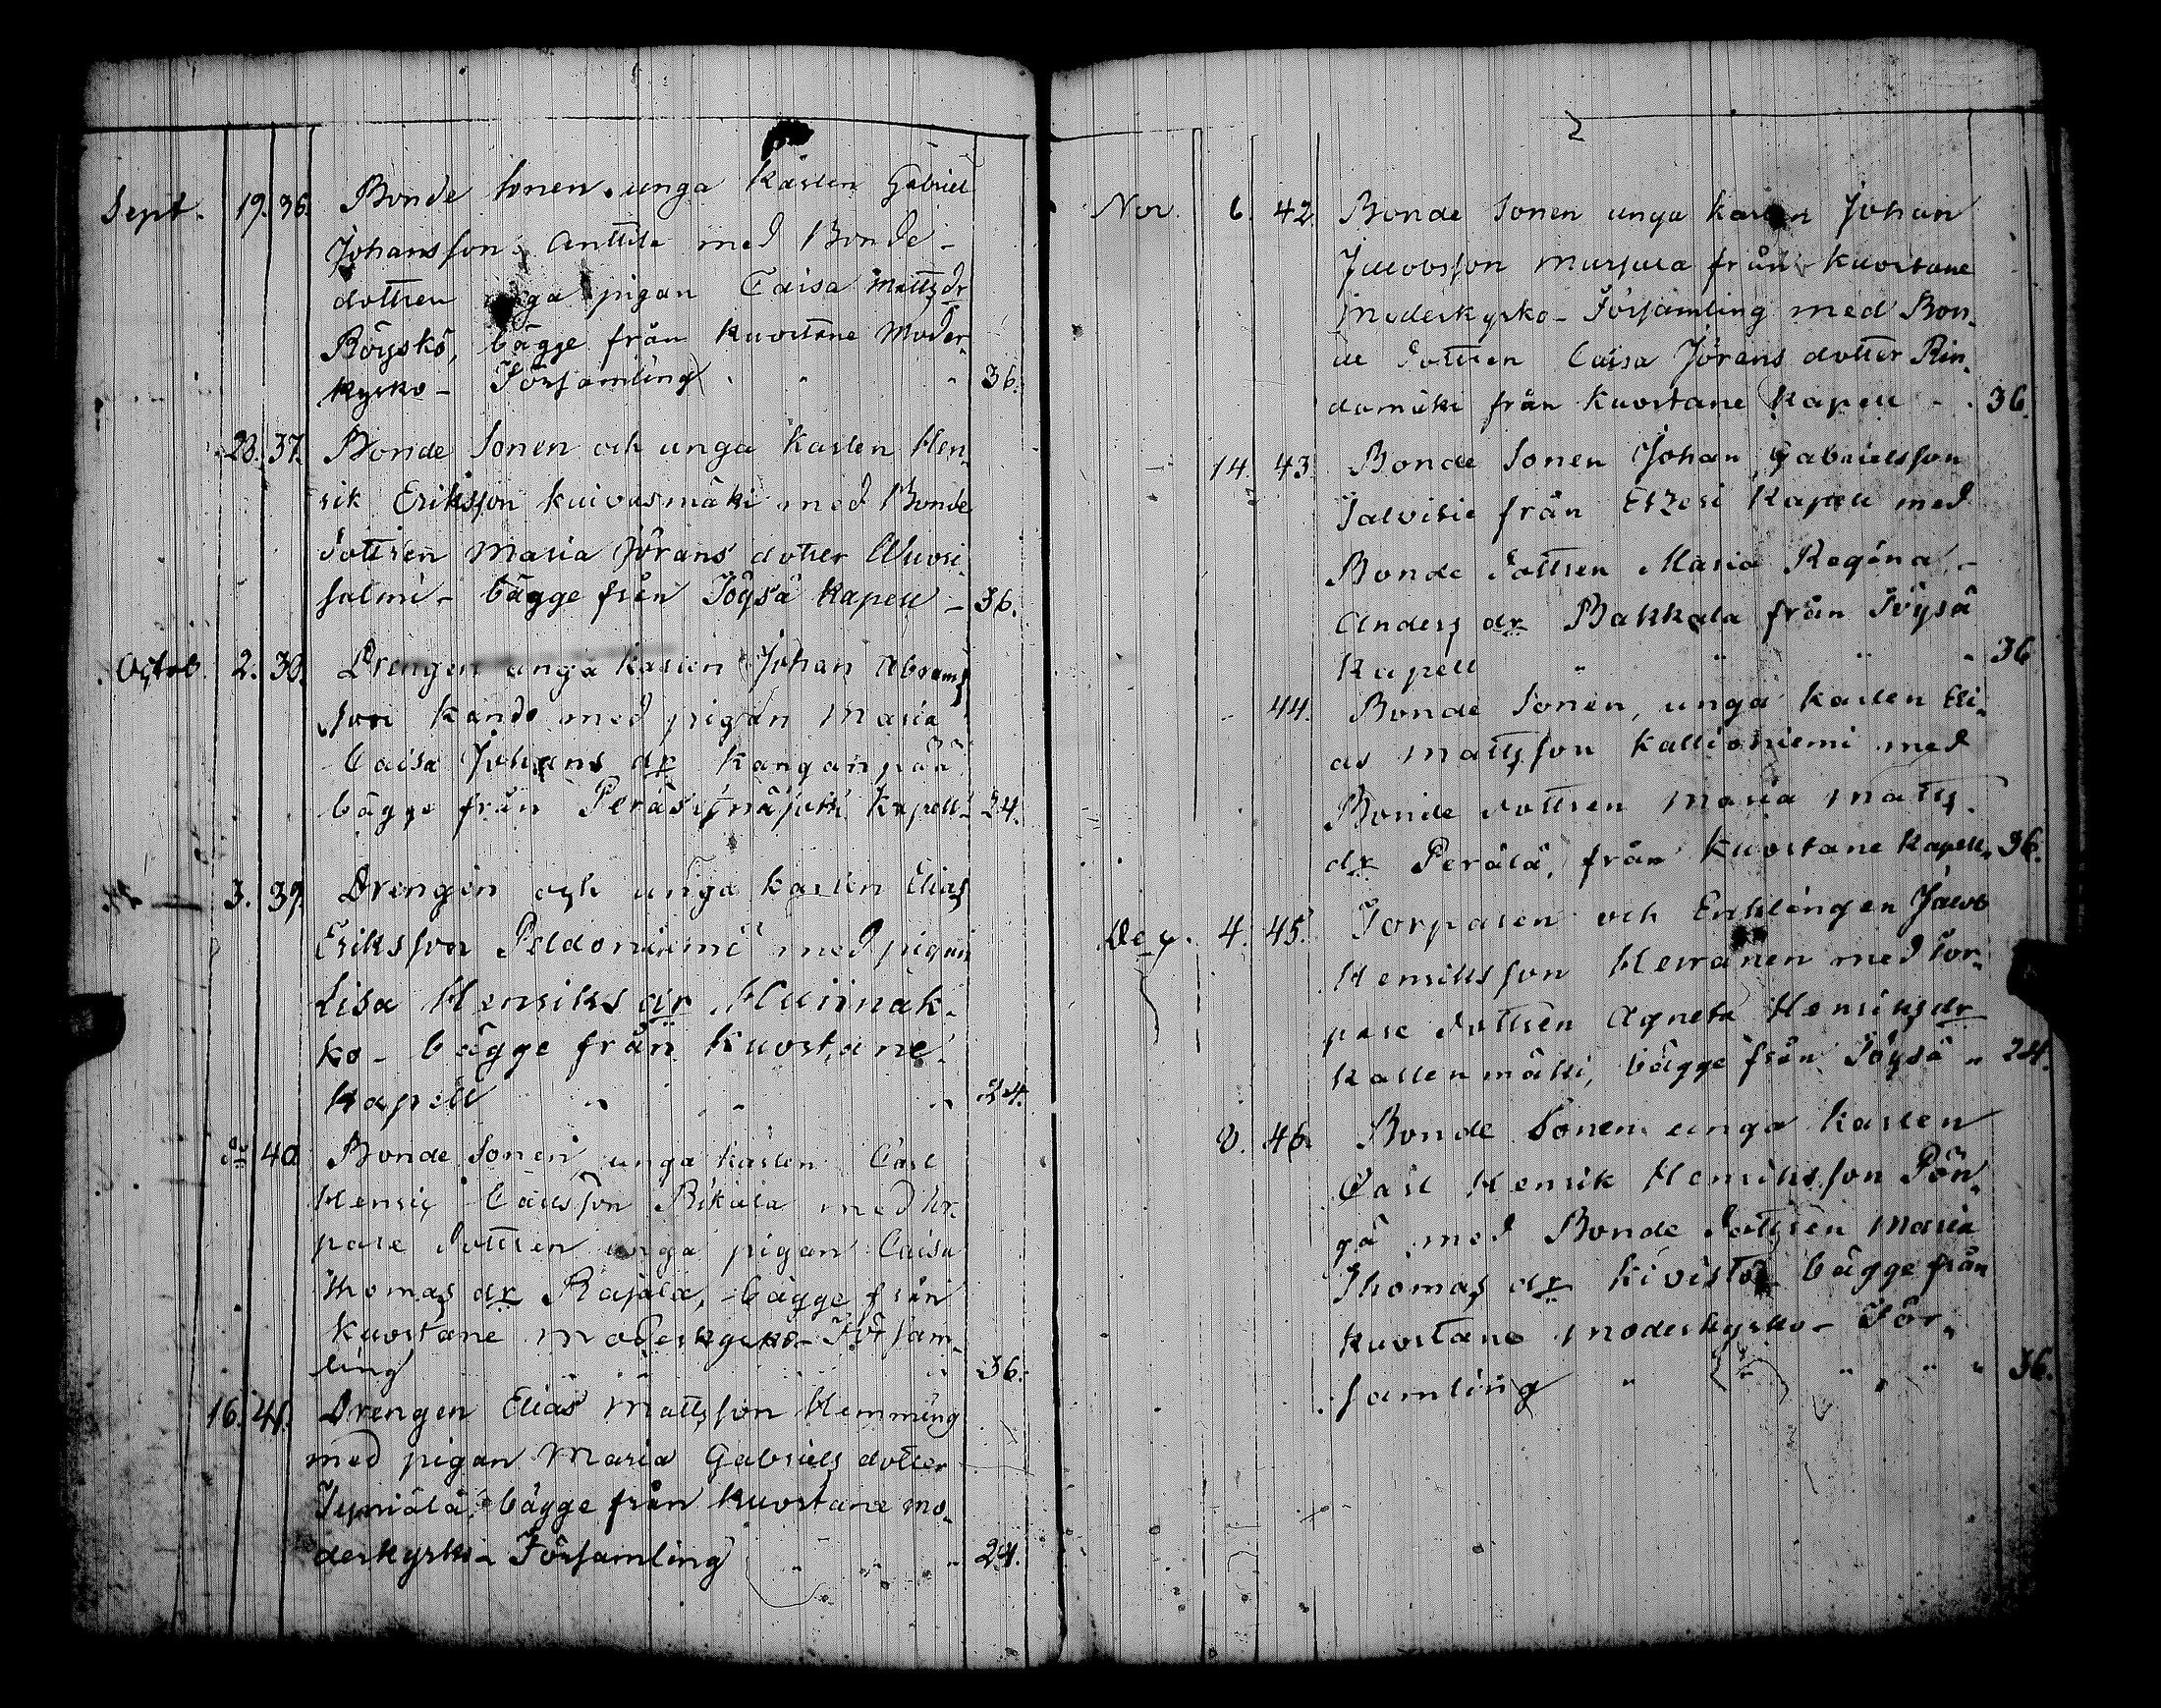 Sept. 19. 36. Bonde Sonen unga Karlen Gabriel
Johansson Anttila med Bonde-
dottren unga pigan Caisa Mattsdr
Röyskö, bägge från Kuortane Moder-
kyrko- Församling " " " 36.
28. 37. Bonde Sonen och unga Karlen Hen-
rik Eriksson Kuivasmäki med Bonde
dottren Maria Jörans dotter Wuori-
salmi - bägge från Töysä Kapell - 36.
Octob. 2. 38. Drengen unga Karlen Johan Abrams
son med pigan Maria
Caisa Johans dr Kanganpää
bägge från Peräseinäjoki Kapell - 24.
3. 39. Drengen och unga Karlen Elias
Eriksson Peldoniemi med pigan
Lisa Henriks dr
ko - bägge från Kuortane
Kapell " " " 24.
dr 40 Bonde Sonen unga Karlen Carl
Henric Carlsson Rikala med tor-
pare dottren unga pigan Caisa
Thomas dr Rajala, - bägge från
Kuortane Moderkyrko- Försam-
ling " " " 36.
16. 41. Drengen Elias Mattsson Hemming
med pigan Maria Gabriels dotter
bägge från Kuortane mo-
derkyrko- Församling " " " 24.
2
Nov. 6. 42. Bonde Sonen unga Karlen Johan
Jacobsson Mursula från Kuortane
Moderkyrko- Församling med Bon-
de dottren Caisa Jörans dotter Rin-
damäki från Kuortane Kapell - - 36.
14. 43. Bonde Sonen Johan Gabrielsson
från Etzeri Kapell med
Bonde dottren Maria Regina -
Anders dr Bakkala från Töysä
Kapell " " " " 36
" 44. Bonde Sonen, unga Karlen Eli-
as Mattsson Kallioniemi med
Bonde dottren Maria Matts
dr Perälä, från Kuortane Kapell " 36.
Dec. 4. 45. Torparen och Enklingen Jacob
Henriksson Heiranen med tor-
pare dottren Agneta Henriksdr
Kallenmäki, bägge från Töysä " 24.
8. 46. Bonde Sonen unga Karlen
Carl Henrik Henriksson Pön-
gä med Bonde dottren Maria
Thomas dr Kivistö bägge från
Kuortane Moderkyrko- För-
samling " " " " " 36.